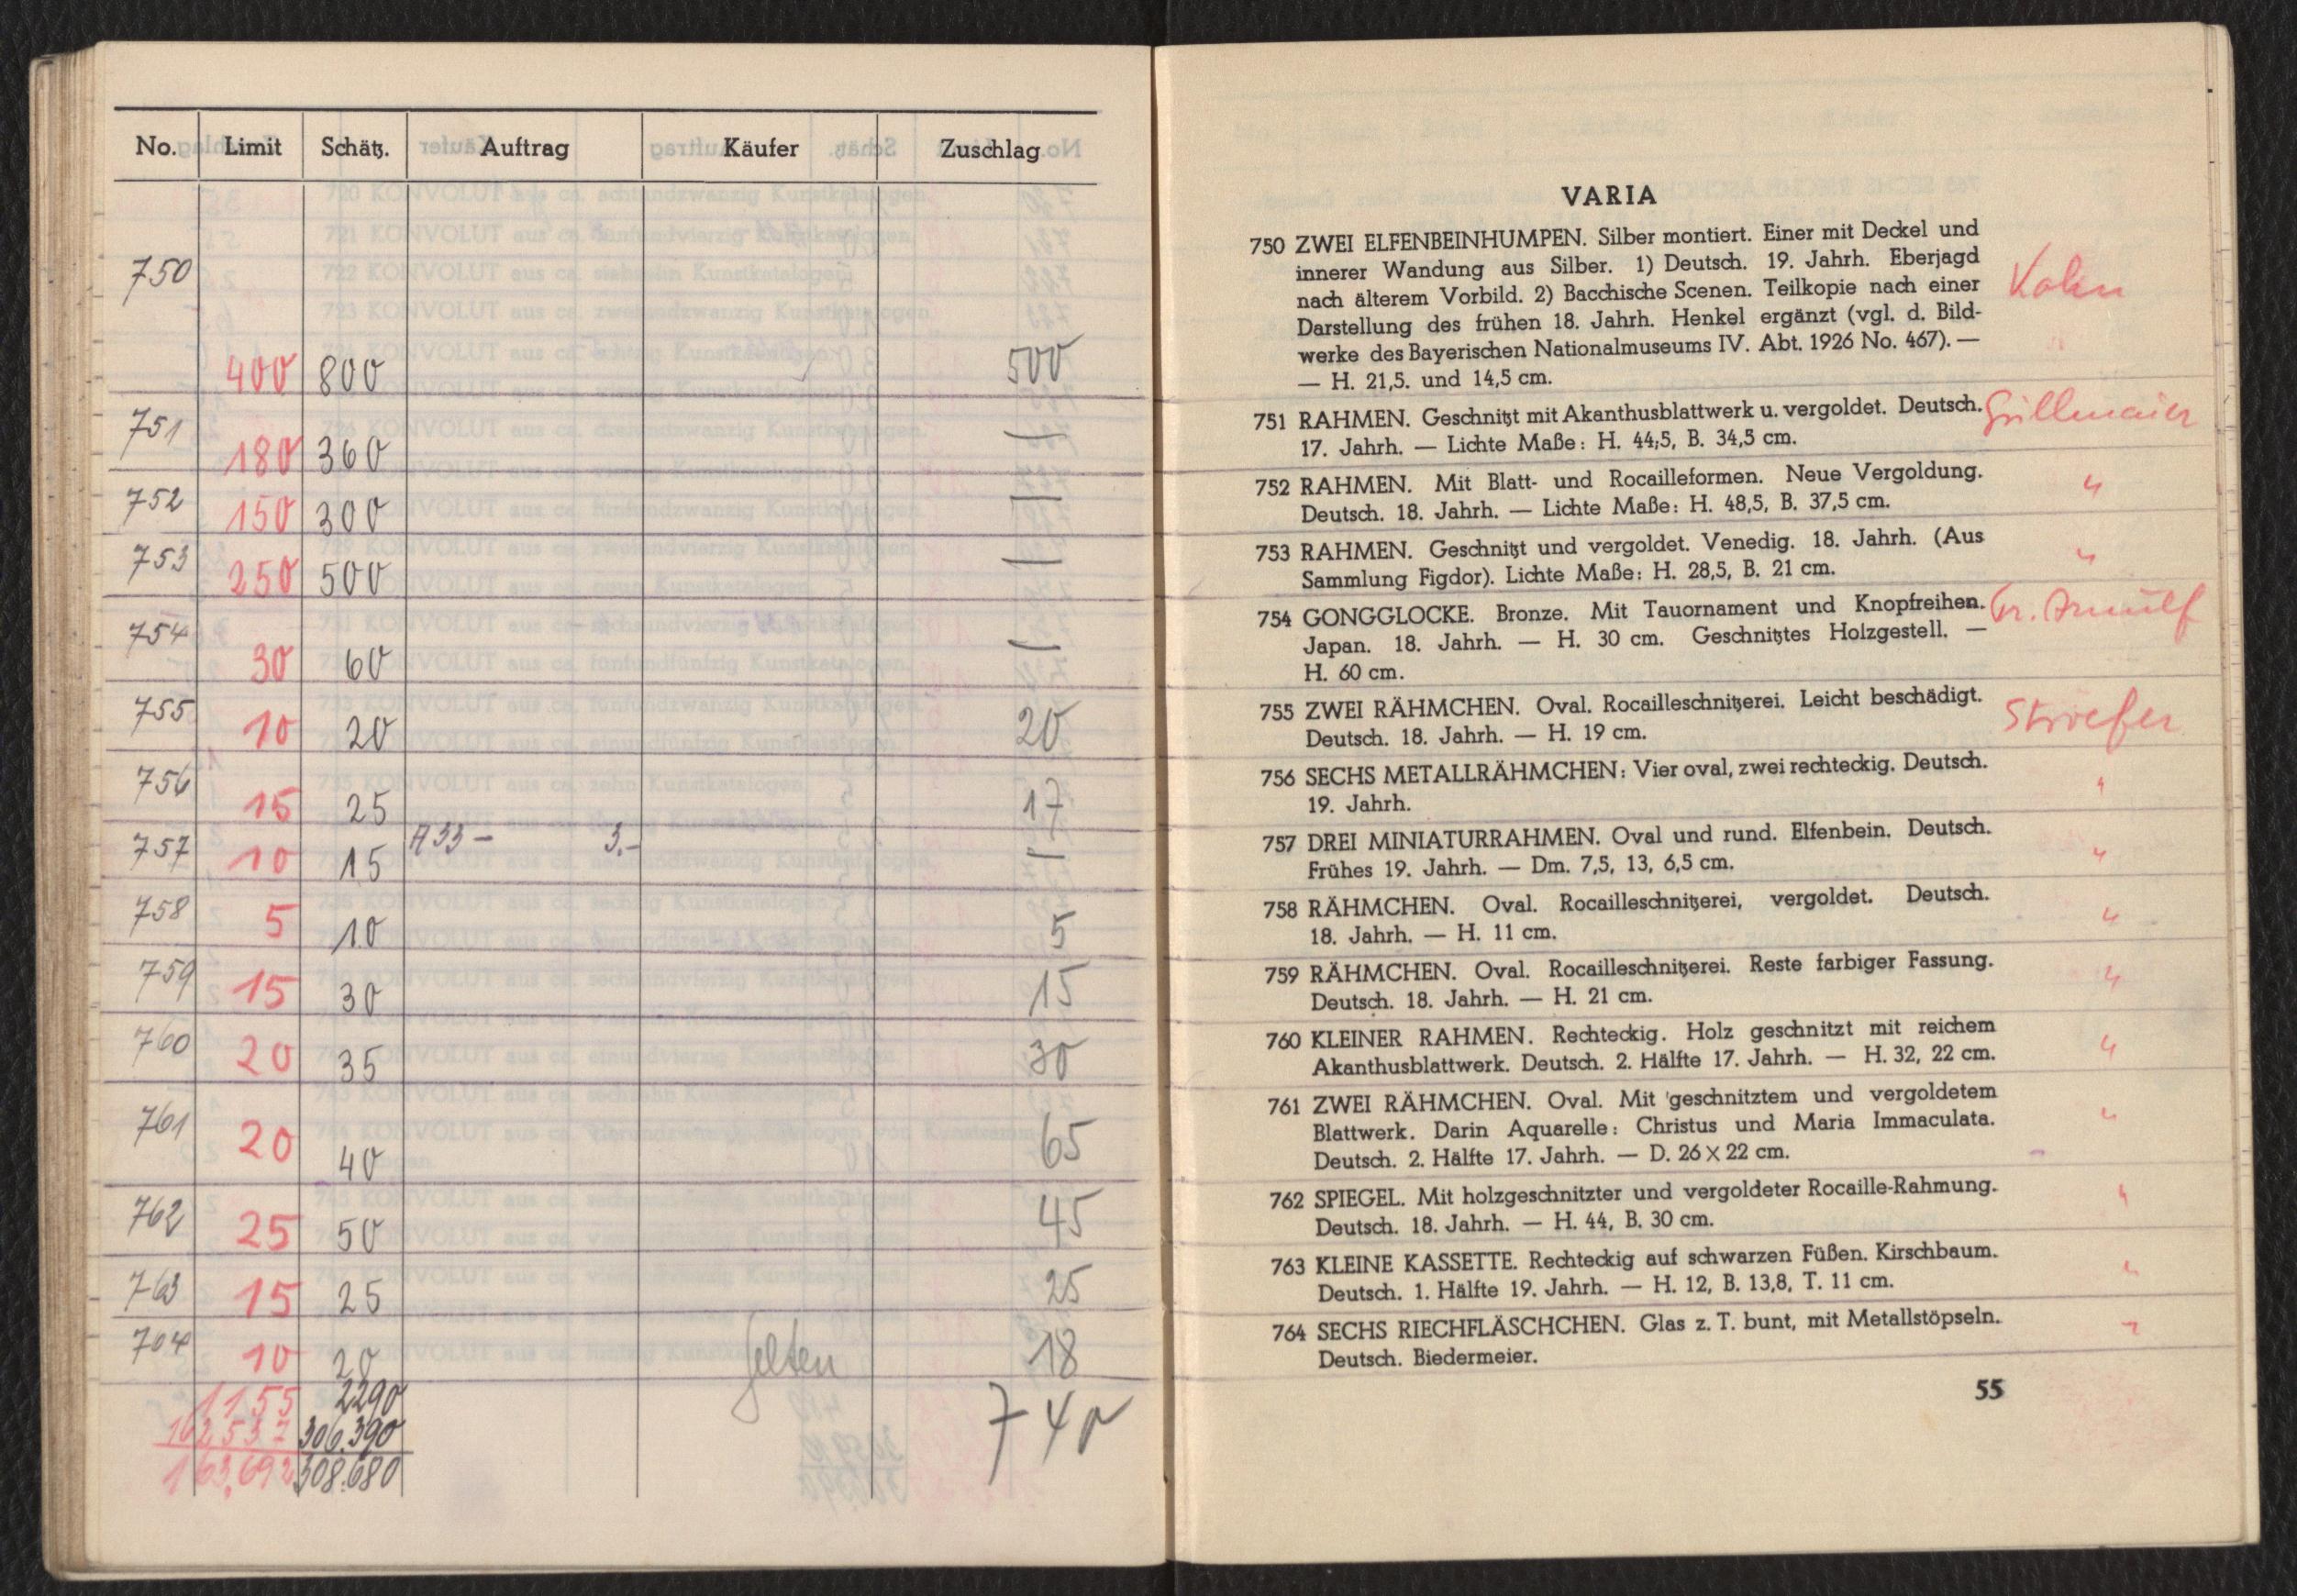 No. Limit Schätz. Auftrag Käufer Zuschlag
750
400 800 500
751 180 360 —
752 150 300 —
753 250 500 —
754 30 60 —
755 10 20 20
756 15 25 17
757 10 15 A 33 — 3.- —
758 5 10 5
759 15 30 15
760 20 35 30
761 20 40 65
762 25 50 45
763 15 25 25
764 10 20 18
1155 2290 740
162537 306.390
163.692 308.680
VARIA
750 ZWEI ELFENBEINHUMPEN. Silber montiert. Einer mit Deckel und
innerer Wandung aus Silber. 1) Deutsch. 19. Jahrh. Eberjagd
nach älterem Vorbild. 2) Bacchische Scenen. Teilkopie nach einer Kohn
Darstellung des frühen 18. Jahrh. Henkel ergänzt (vgl. d. Bild-
werke des Bayerischen Nationalmuseums IV. Abt. 1926 No. 467). —
— H. 21,5. und 14,5 cm.
751 RAHMEN. Geschnitzt mit Akanthusblattwerk u. vergoldet. Deutsch. Grillmaier
17. Jahrh. — Lichte Maße: H. 44,5, B. 34,5 cm.
752 RAHMEN. Mit Blatt- und Rocailleformen. Neue Vergoldung. "
Deutsch. 18. Jahrh. — Lichte Maße: H. 48,5, B. 37,5 cm.
753 RAHMEN. Geschnitzt und vergoldet. Venedig. 18. Jahrh. (Aus "
Sammlung Figdor). Lichte Maße: H. 28,5, B. 21 cm.
754 GONGGLOCKE. Bronze. Mit Tauornament und Knopfreihen. Gr. Arnulf
Japan. 18. Jahrh. — H. 30 cm. Geschnitztes Holzgestell. —
H. 60 cm.
755 ZWEI RÄHMCHEN. Oval. Rocailleschnitzerei. Leicht beschädigt.
Deutsch. 18. Jahrh. — H. 19 cm.
756 SECHS METALLRÄHMCHEN: Vier oval, zwei rechteckig. Deutsch. "
19. Jahrh.
757 DREI MINIATURRAHMEN. Oval und rund. Elfenbein. Deutsch. "
Frühes 19. Jahrh. — Dm. 7,5, 13, 6,5 cm.
758 RÄHMCHEN. Oval. Rocailleschnitzerei, vergoldet. Deutsch. "
18. Jahrh. — H. 11 cm.
759 RÄHMCHEN. Oval. Rocailleschnitzerei. Reste farbiger Fassung. "
Deutsch. 18. Jahrh. — H. 21 cm.
760 KLEINER RAHMEN. Rechteckig. Holz geschnitzt mit reichem "
Akanthusblattwerk. Deutsch. 2. Hälfte 17. Jahrh. — H. 32, 22 cm.
761 ZWEI RÄHMCHEN. Oval. Mit geschnitztem und vergoldetem "
Blattwerk. Darin Aquarelle: Christus und Maria Immaculata.
Deutsch. 2. Hälfte 17. Jahrh. — D. 26 × 22 cm.
762 SPIEGEL. Mit holzgeschnitzter und vergoldeter Rocaille-Rahmung. "
Deutsch. 18. Jahrh. — H. 44, B. 30 cm.
763 KLEINE KASSETTE. Rechteckig auf schwarzen Füßen. Kirschbaum. "
Deutsch. 1. Hälfte 19. Jahrh. — H. 12, B. 13,8, T. 11 cm.
764 SECHS RIECHFLÄSCHCHEN. Glas z. T. bunt, mit Metallstöpseln. "
Deutsch. Biedermeier.
55